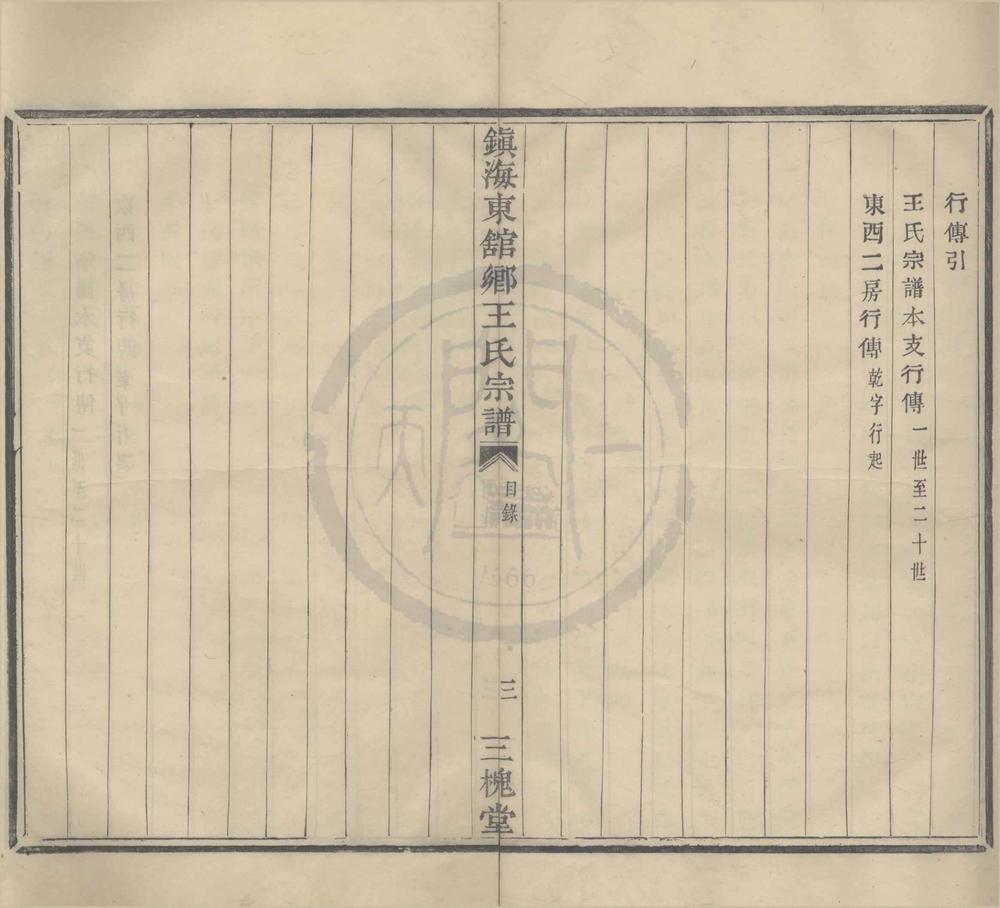 行傳引
王氏宗譜本支行傳一世至二十世
東西二房行傳乾字行起
鎮海東舘鄉王氏宗譜
目錄
三
三槐堂
天一閣
1566